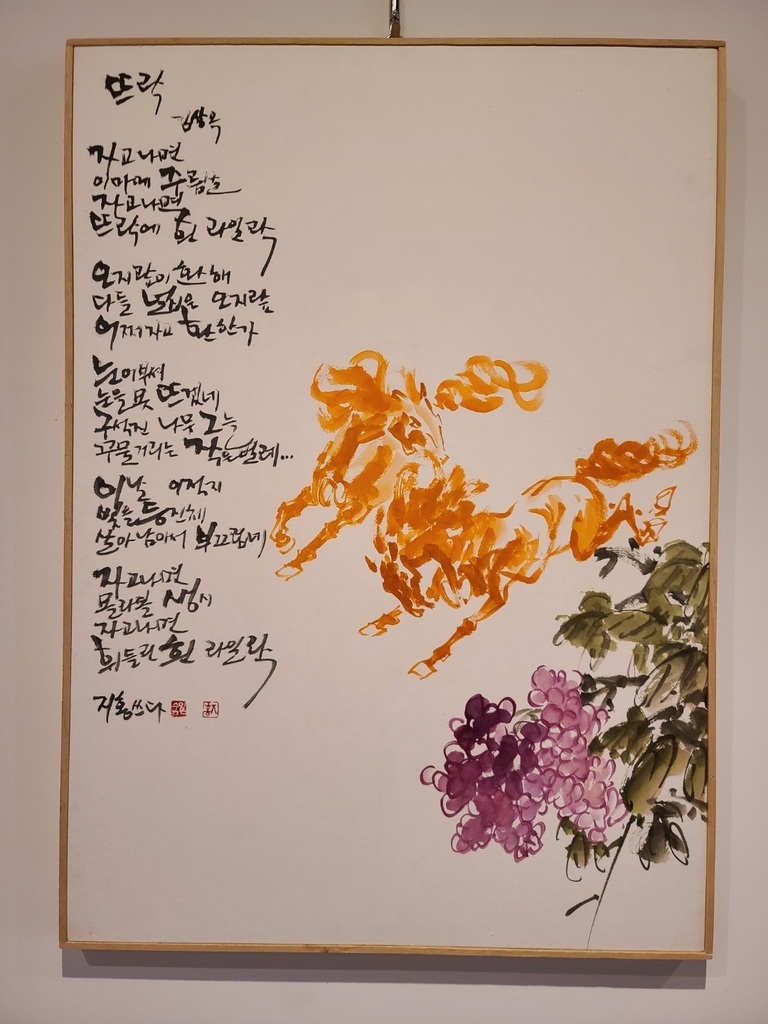 뜨락
김상옥
자고나면
이마에 주름살
자고나면
뜨락에 흰 라일락
오지랖이 환해
다들 넓은 오지랖
어쩌자고 환한가
눈이부셔
눈을 못 뜨겠네
구석진 나무그늘
꾸물거리는 작은벌레...
이날 이적지
빛을 등진채
살아 남아서 부끄럽네
자고나면
몰라볼 생시
자고나면
휘드린 흰 라일락
지홍쓰다